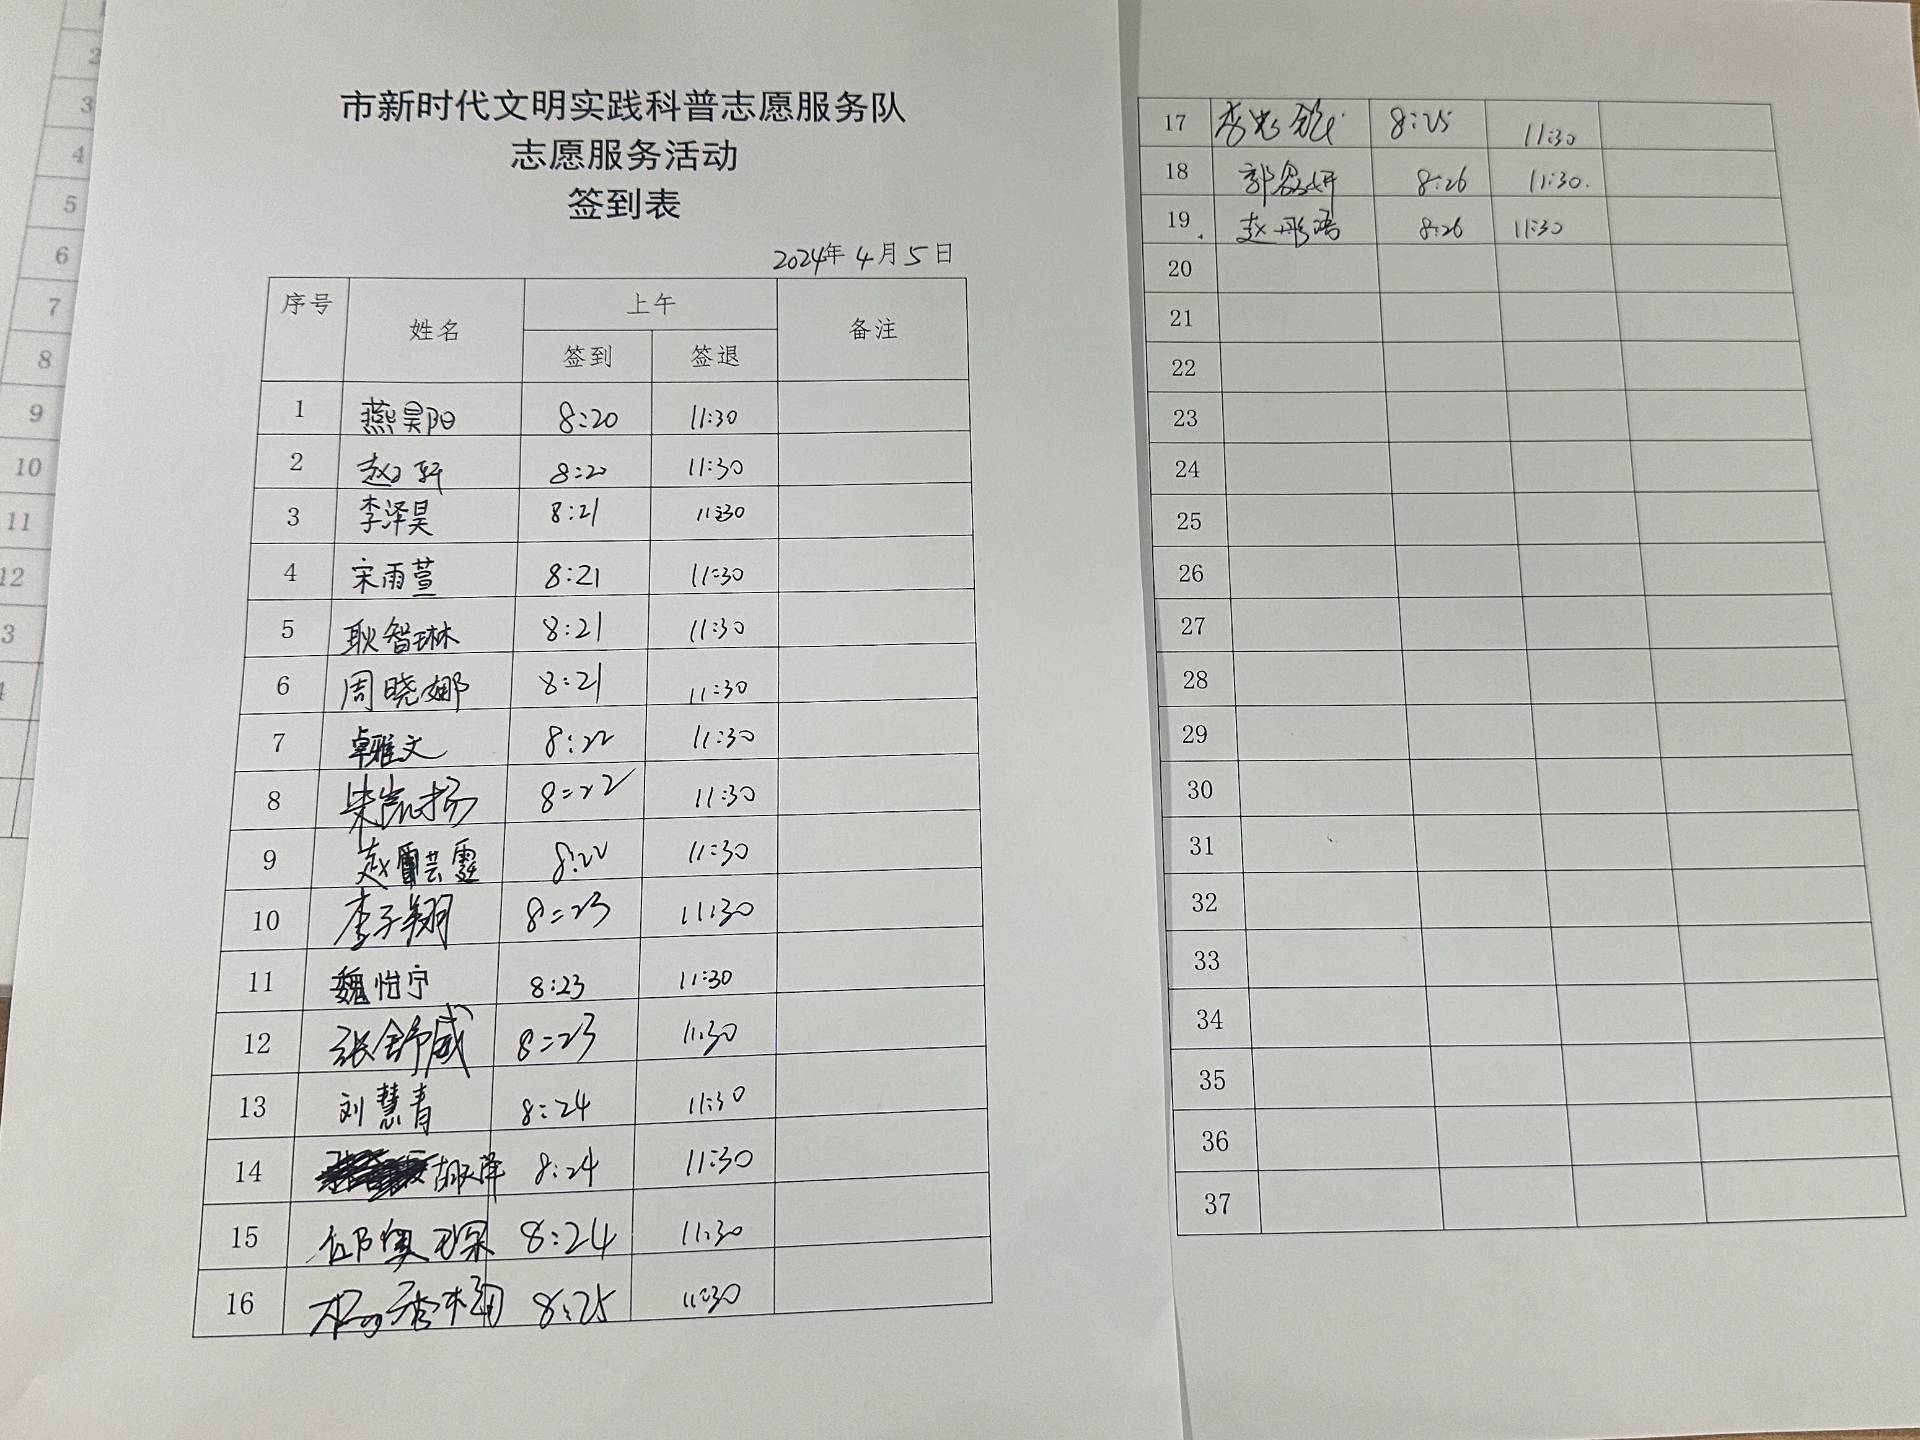 市新时代文明实践科普志愿服务队
志愿服务活动
签到表
2024年4月5日
序号 姓名 上午 备注
签到 签退
1 燕昊阳 8:20 11:30
2 赵 轩 8:20 11:30
3 李泽昊 8:21 11:30
4 宋雨萱 8:21 11:30
5 耿智琳 8:21 11:30
6 周晓娜 8:21 11:30
7 卓雅文 8:22 11:30
8 朱凯扬 8:22 11:30
9 赵芸霆 8:22 11:30
10 李子翔 8:23 11:30
11 魏怡宁 8:23 11:30
12 张舒威 8:23 11:30
13 刘慧青 8:24 11:30
14 胡天泽 8:24 11:30
15 邱奥琛 8:24 11:30
16 杨秀 8:25 11:30
17 李 8:25 11:30
18 郭 妍 8:26 11:30.
19 赵彤 8:26 11:30
20
21
22
23
24
25
26
27
28
29
30
31
32
33
34
35
36
37
2
3
4
5
6
7
8
9
10
11
12
3
4